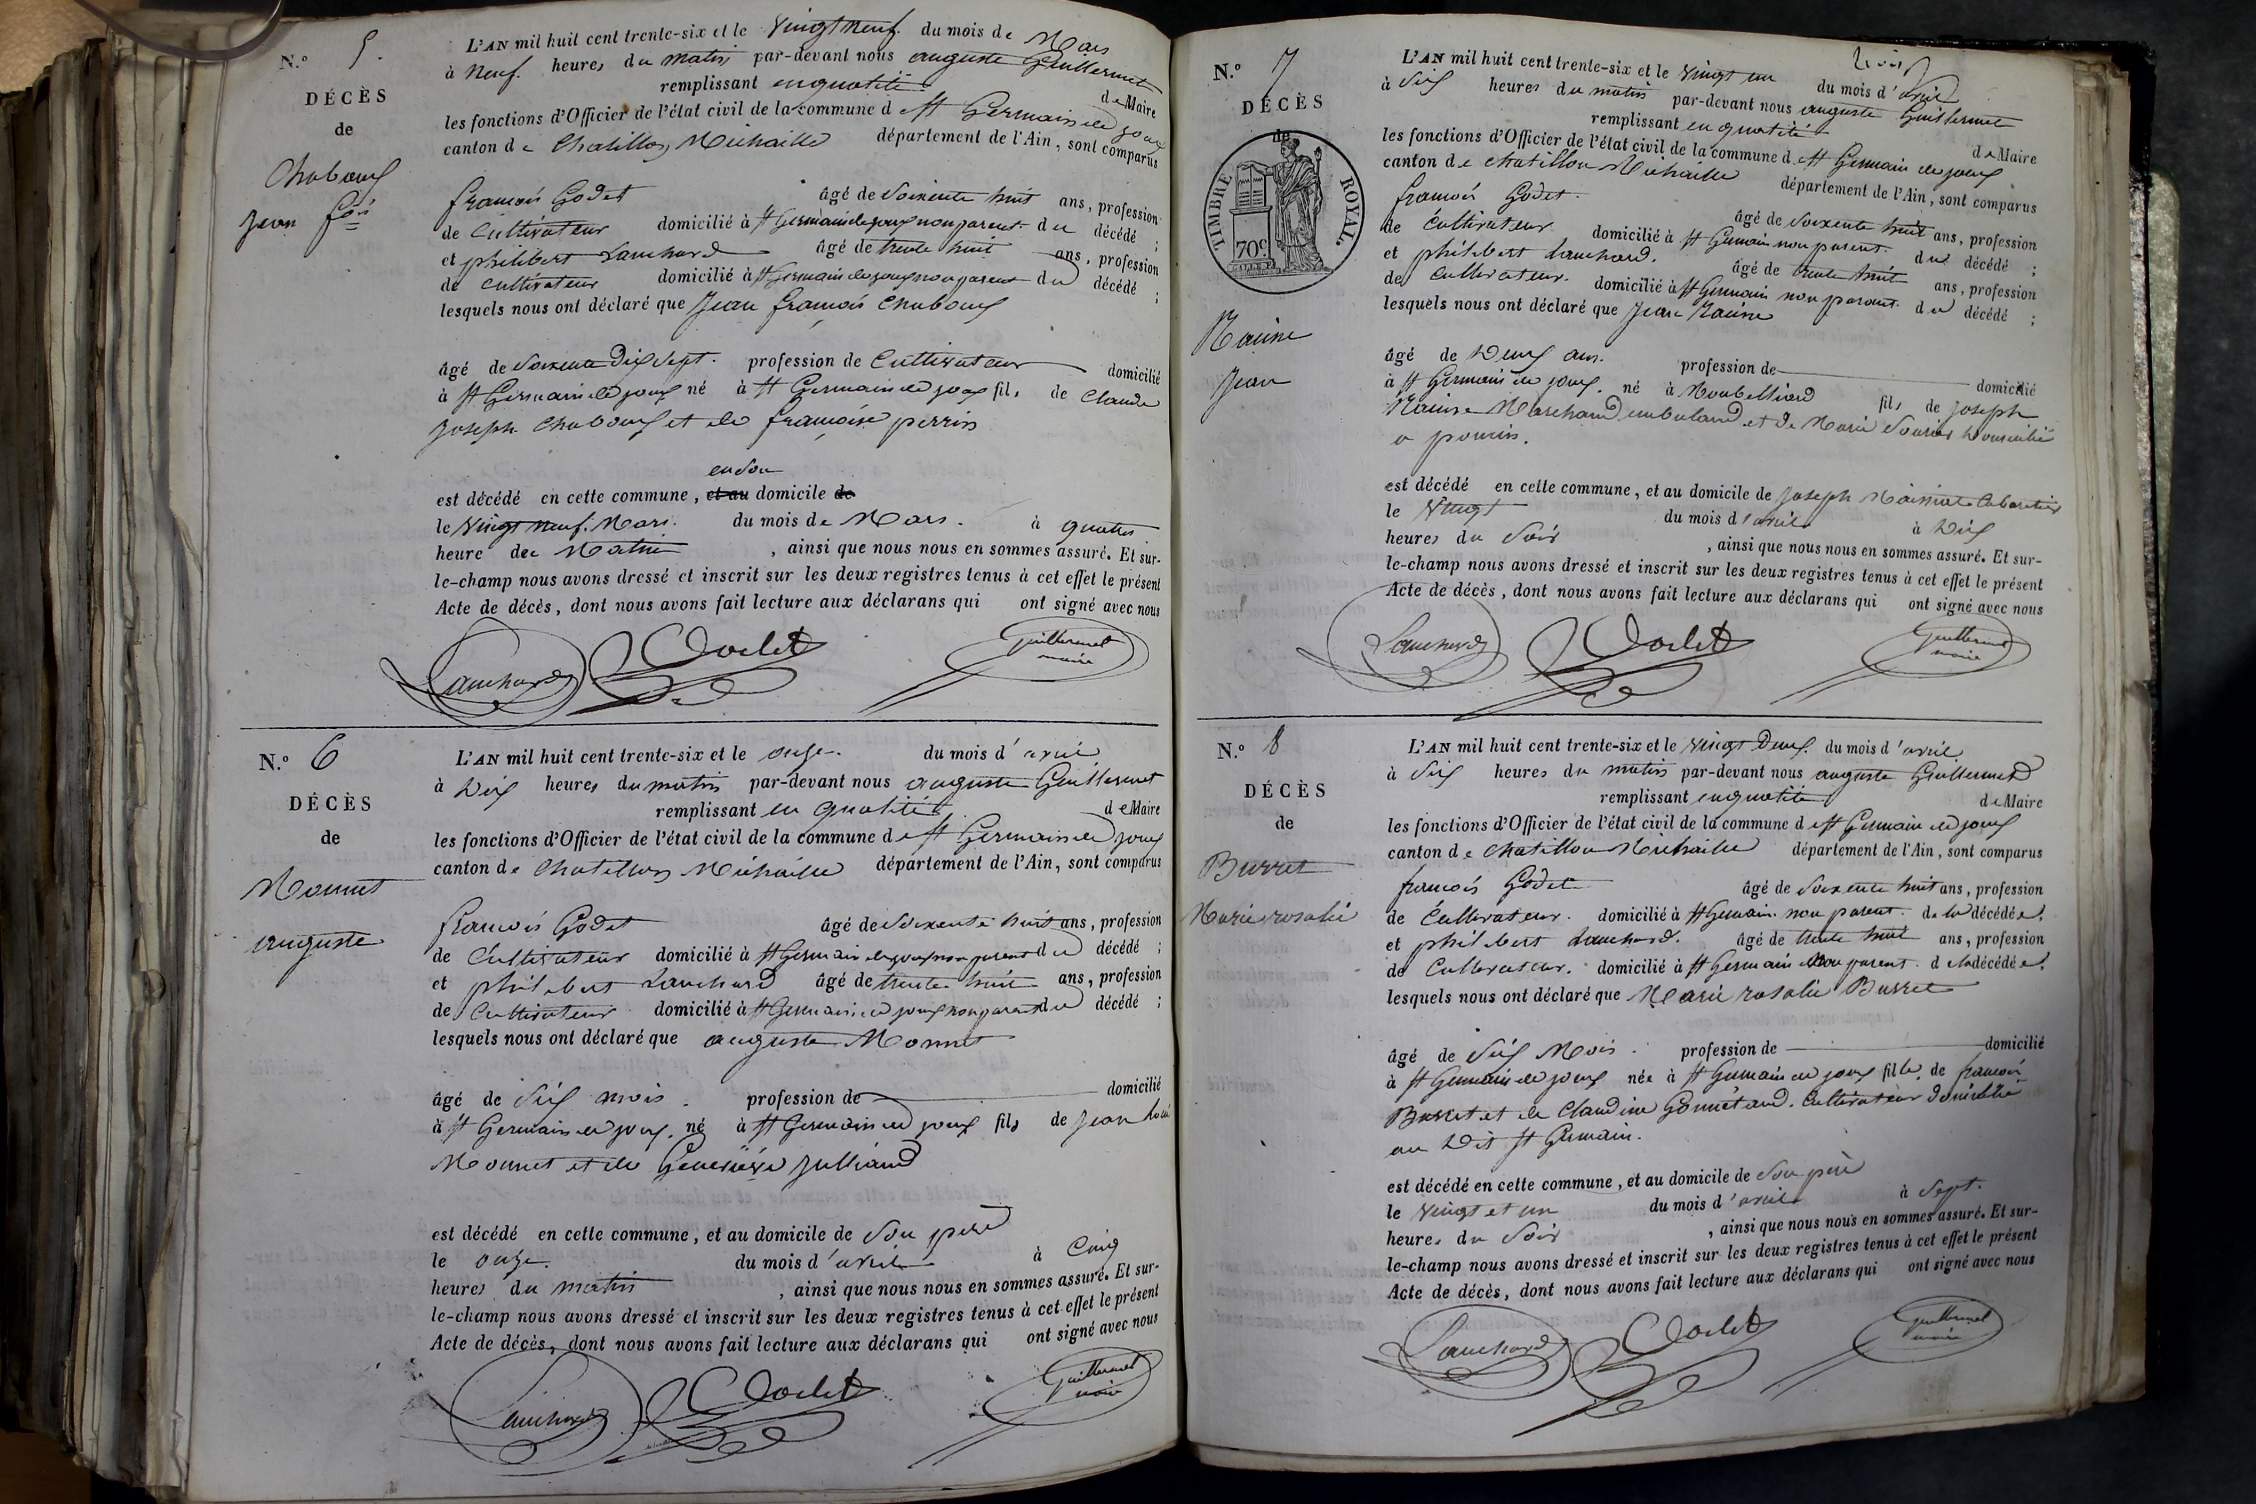 N.º 5.
DÉCÈS
de
Chaboux
Jean fois
L'AN mil huit cent trente-six et le vingt neuf. du mois de Mars
à neuf. heures du matin par-devant nous auguste Guillermet
remplissant en qualité de Maire
les fonctions d'Officier de l'état civil de la commune de St Germain de joux
canton de Chatillon Michaille département de l'Ain, sont comparus
francois Godet âgé de Soixente huit ans, profession
de Cultivateur domicilié à St Germain de joux non parent du décédé ;
et philibert Lanchard âgé de trente huit ans, profession
de cultivateur domicilié à St Germain de joux non parent du décédé ;
lesquels nous ont déclaré que Jean francois Chaboux
âgé de Soixente Dix Sept. profession de Cultivateur domicilié
à St Germain de joux né à St Germain de joux fils de Claude
Joseph Chaboux et de francoise perrin
en Son
est décédé en cette commune, et au domicile de
le vingt neuf. Mars. du mois de Mars. à quatre
heure de Matin , ainsi que nous nous en sommes assuré. Et sur-
le-champ nous avons dressé et inscrit sur les deux registres tenus à cet effet le présent
Acte de décès, dont nous avons fait lecture aux déclarans qui ont signé avec nous
Lanchard Godet Guillermet
maire
N.º 6
DÉCÈS
de
Monnet
auguste
L'AN mil huit cent trente-six et le onze. du mois d'avril
à Dix heures du matin par-devant nous auguste Guillermet
remplissant en qualité de Maire
les fonctions d'Officier de l'état civil de la commune de St Germain de joux
canton de Chatillon Michaille département de l'Ain, sont comparus
francois Godet âgé de Soixente huit ans, profession
de Cultivateur domicilié à St Germain de joux non parent du décédé ;
et philibert Lanchard âgé de trente huit ans, profession
de Cultivateur domicilié à St Germain de joux non parent du décédé ;
lesquels nous ont déclaré que auguste Monnet
âgé de Six mois. profession de domicilié
à St Germain de joux. né à St Germain de joux fils de Jean
Monnet et de Geneviève Julliand
est décédé en cette commune, et au domicile de Son père
le onze. du mois d'avril à Cinq
heures du matin , ainsi que nous nous en sommes assuré. Et sur-
le-champ nous avons dressé et inscrit sur les deux registres tenus à cet effet le présent
Acte de décès, dont nous avons fait lecture aux déclarans qui ont signé avec nous
Lanchard Godet Guillermet
maire
N.º 7
DÉCÈS
de
TIMBRE ROYAL
70c
Racine
Jean
L'AN mil huit cent trente-six et le vingt un du mois d'avril
à Six heures du matin par-devant nous auguste Guillermet
remplissant en qualité de Maire
les fonctions d'Officier de l'état civil de la commune de St Germain de joux
canton de Chatillon Michaille département de l'Ain, sont comparus
francois Godet. âgé de Soixente huit ans, profession
de Cultivateur domicilié à St Germain non parent. du décédé ;
et philibert Lanchard. âgé de trente huit ans, profession
de Cultivateur. domicilié à St Germain non parent. du décédé ;
lesquels nous ont déclaré que Jean Racine
âgé de Deux ans. profession de domicilié
à St Germain de joux. né à Monbelliard fils de Joseph
Racine Marchand embuland et de Marie Domicilié
a
est décédé en cette commune, et au domicile de Joseph Cabaretier
le vingt du mois d'avril à Dix
heures du Soir , ainsi que nous nous en sommes assuré. Et sur-
le-champ nous avons dressé et inscrit sur les deux registres tenus à cet effet le présent
Acte de décès, dont nous avons fait lecture aux déclarans qui ont signé avec nous
Lanchard Godet Guillermet
maire
N.º 8
DÉCÈS
de
Burret
Marie rosalie
L'AN mil huit cent trente-six et le vingt Deux. du mois d'avril
à Six heures du matin par-devant nous auguste Guillermet
remplissant en qualité de Maire
les fonctions d'Officier de l'état civil de la commune de St Germain de joux
canton de Chatillon Michaille département de l'Ain, sont comparus
francois Godet âgé de Soixente huit ans, profession
de Cultivateur. domicilié à St Germain. non parent. de la décédée.
et philibert Lanchard. âgé de trente huit ans, profession
de Cultivateur. domicilié à St Germain non parent. de la décédée.
lesquels nous ont déclaré que Marie rosalie Burret
âgé de Six Mois. profession de domicilié
à St Germain de joux née à St Germain de joux fille de francois
Burret et de Claudine Gonnetand. Cultivateur Domicilié
au Dit St Germain.
est décédé en cette commune, et au domicile de Son père
le vingt et un du mois d'avril à Sept.
heures du Soir , ainsi que nous nous en sommes assuré. Et sur-
le-champ nous avons dressé et inscrit sur les deux registres tenus à cet effet le présent
Acte de décès, dont nous avons fait lecture aux déclarans qui ont signé avec nous
Lanchard Godet Guillermet
maire